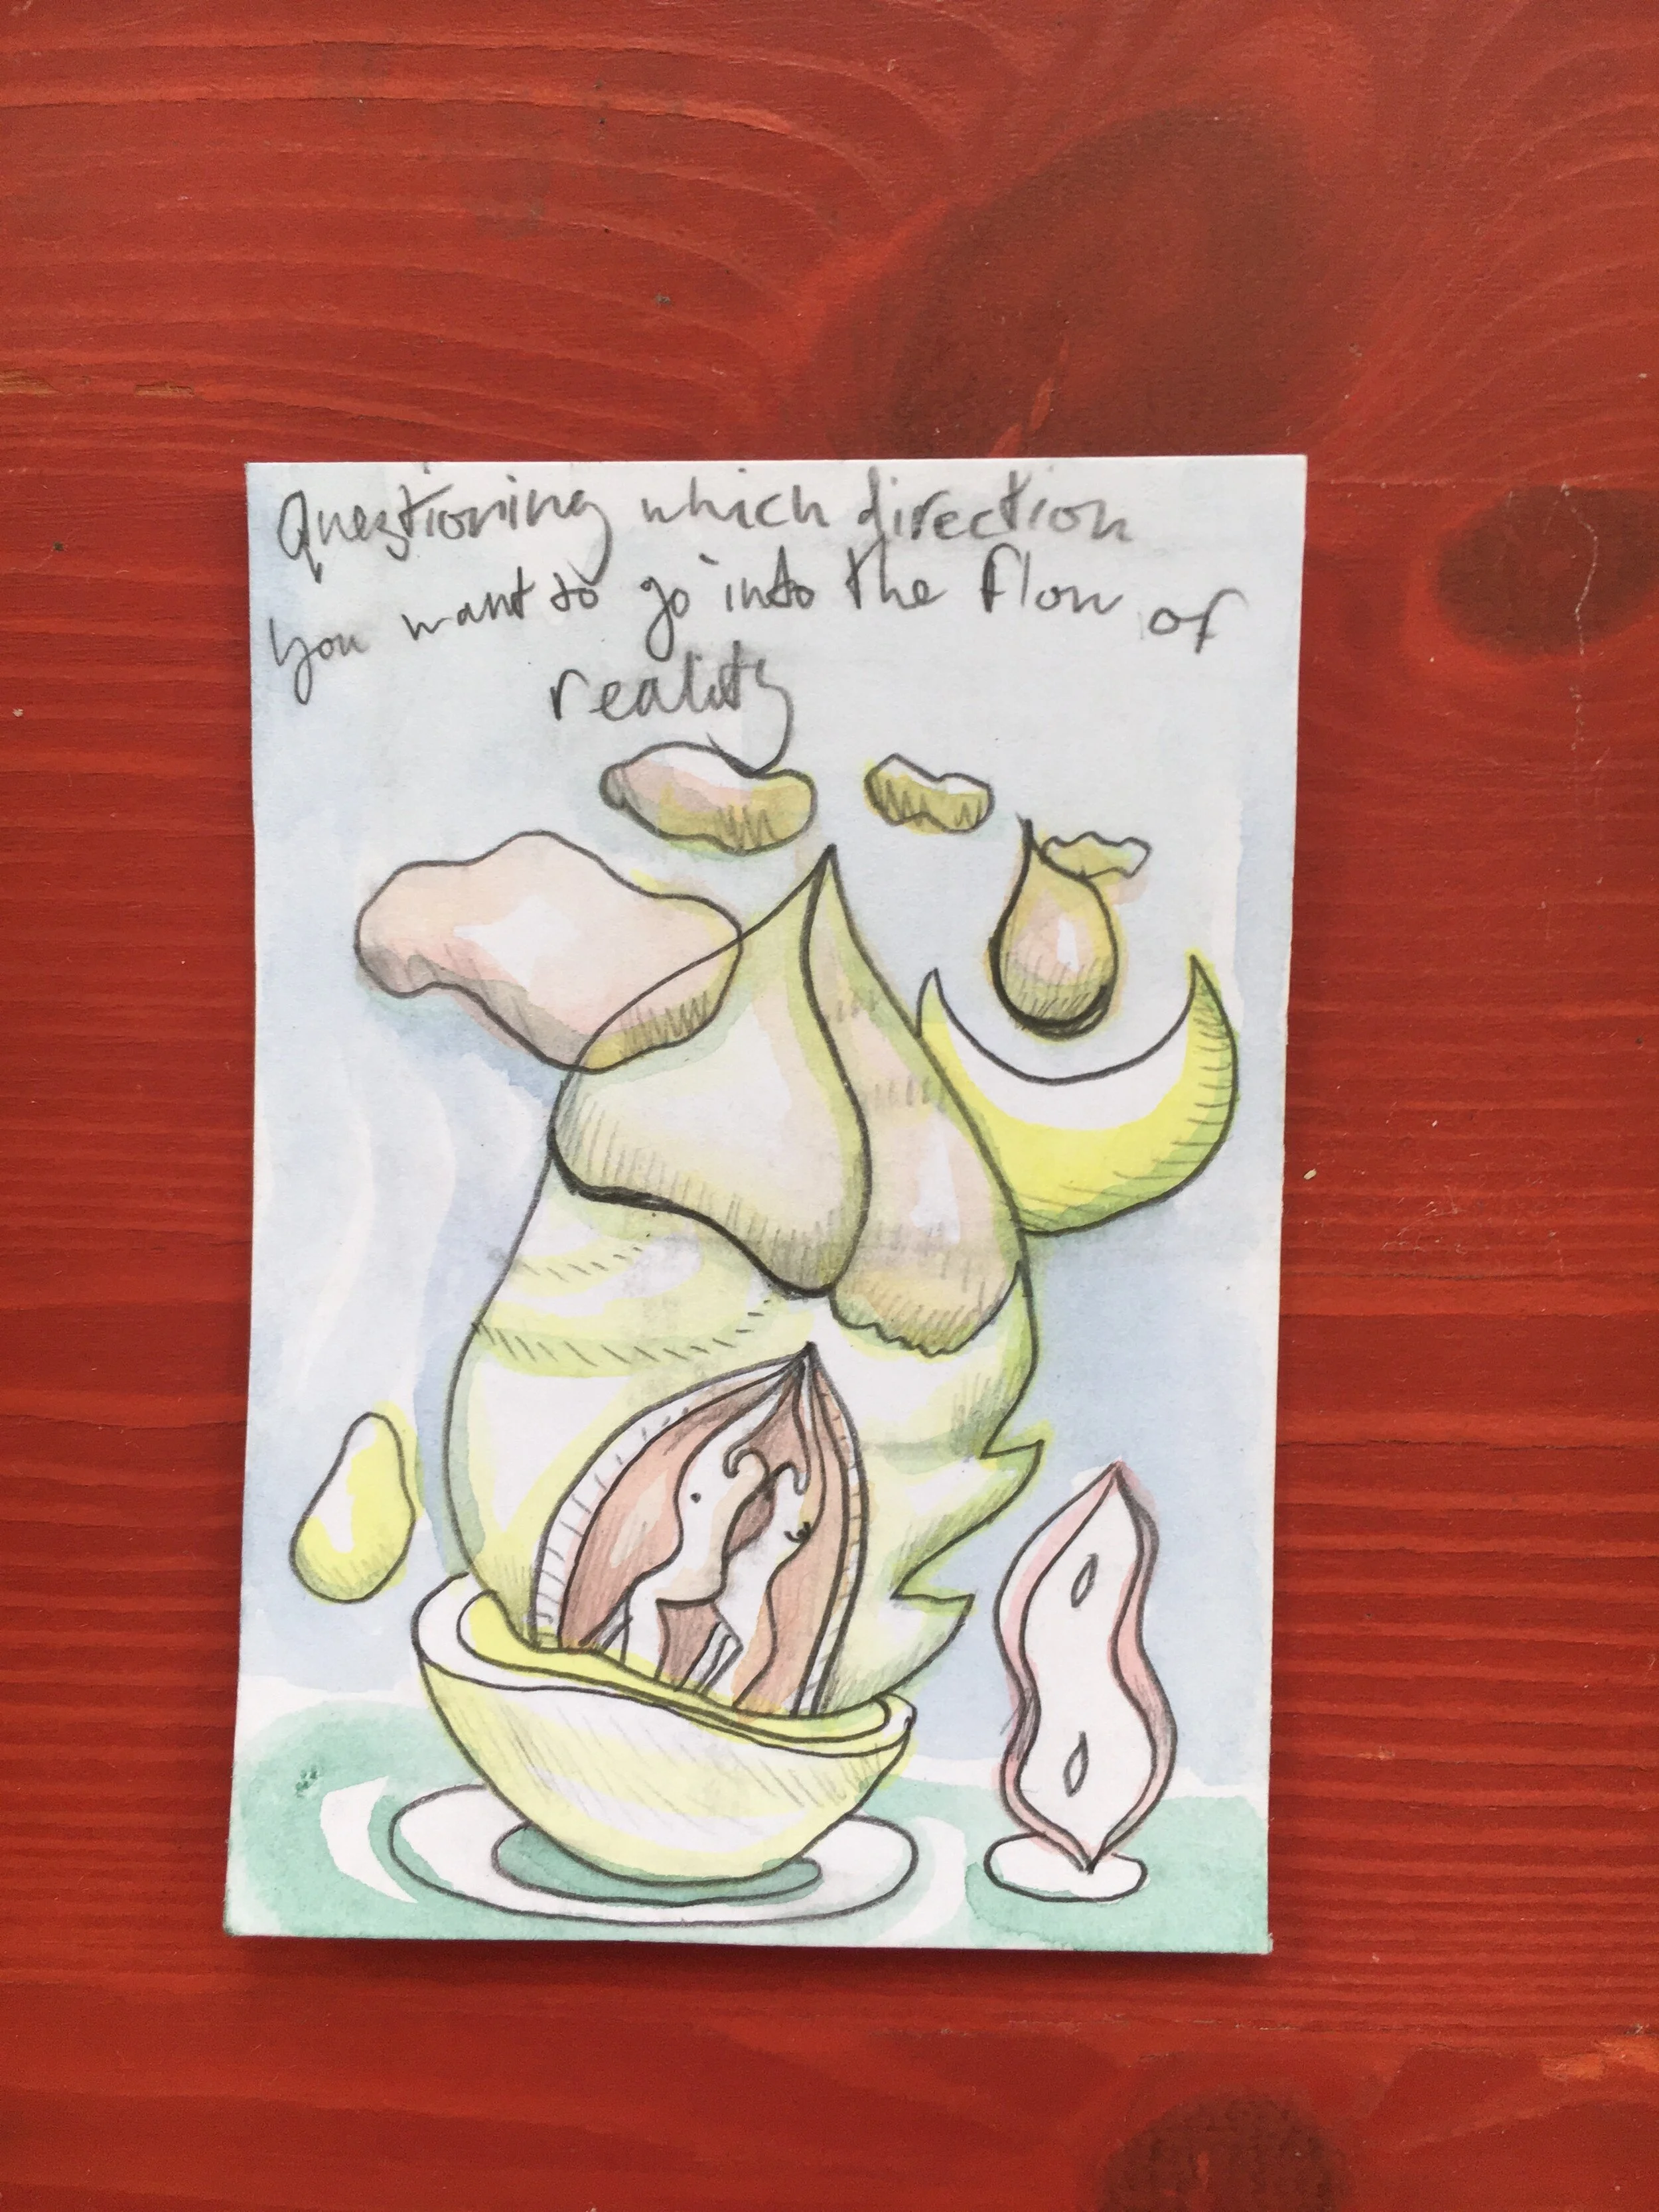 Questioning which direction
you want to go into the flow of
reality